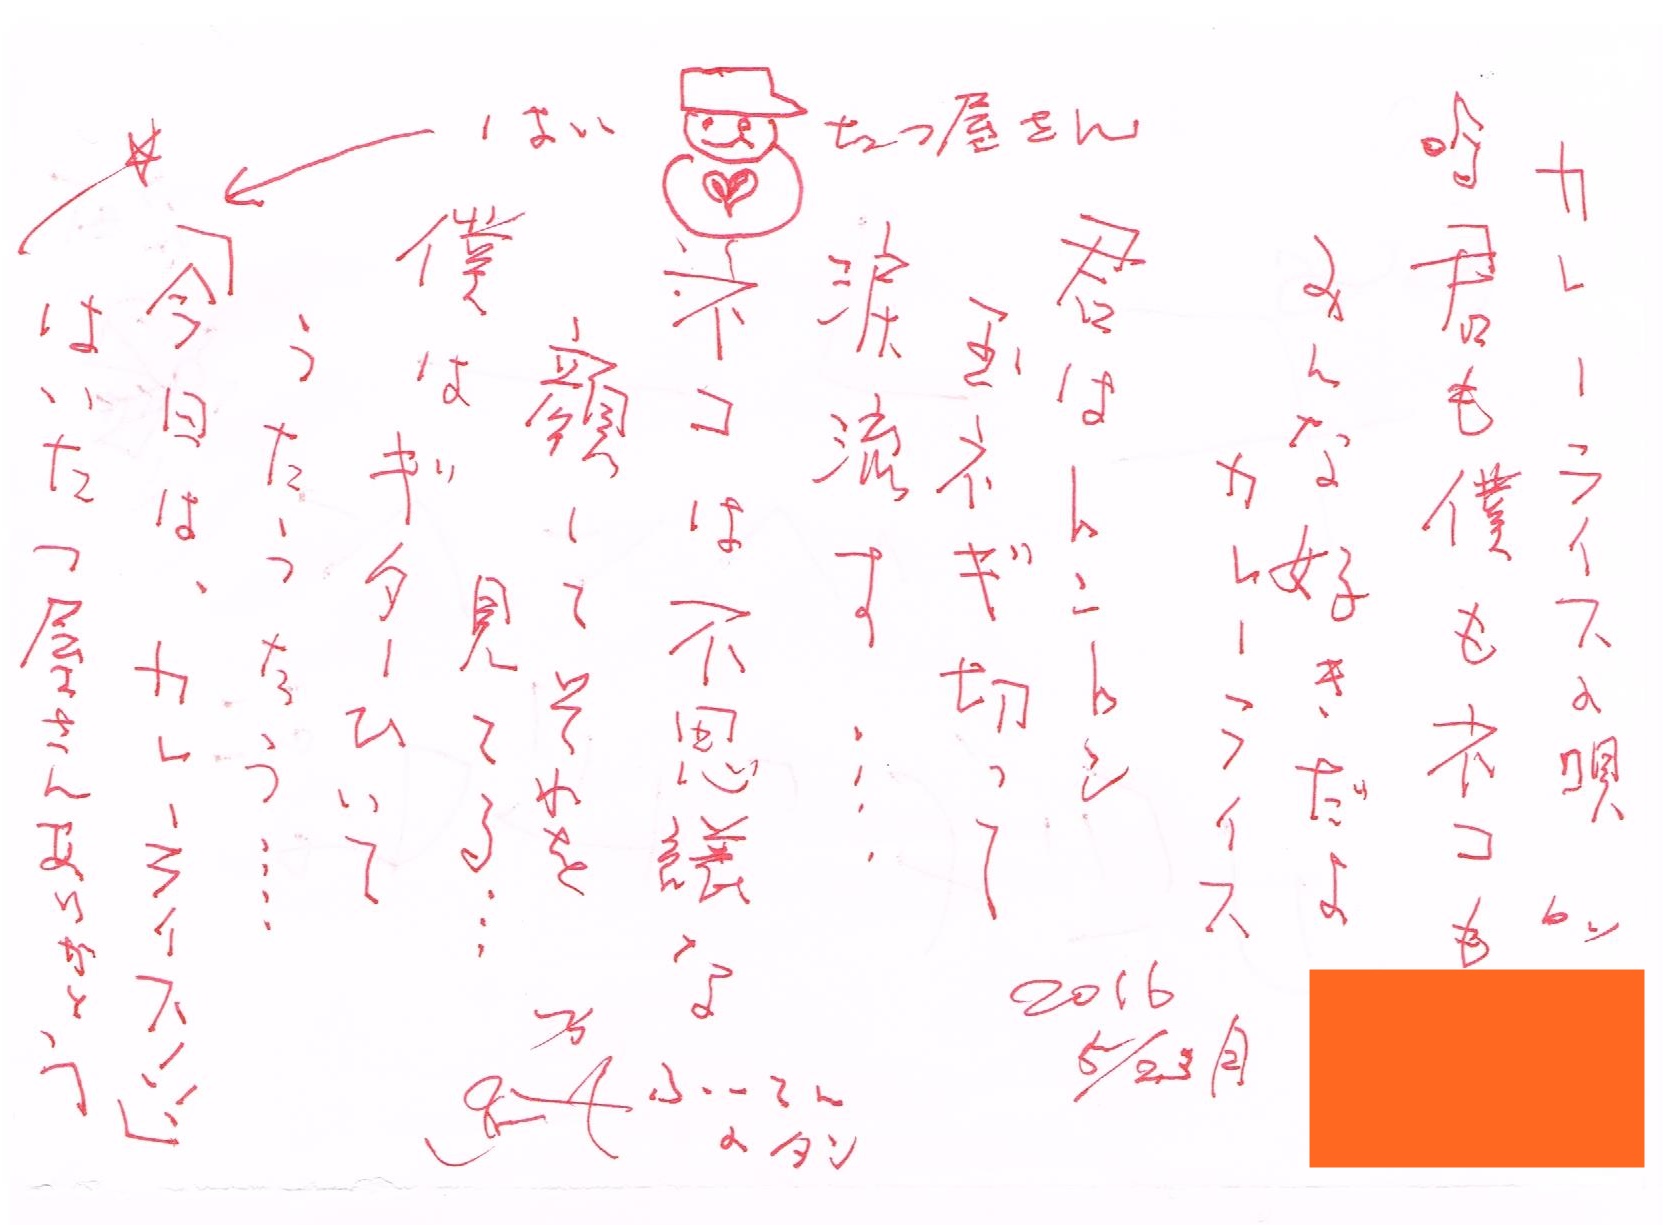 カレーライスの唄
君も僕もネコも
みんな好きだよ
カレーライス
君はトントンと
玉ネギ切って
涙流す……
ネコは不思議な
顔してそれを
見てる…
僕はギターひいて
うたうったう……
「今日は、カレーライスだ」
はいたつ屋さんありがとう
はい
たつ屋さん
2016
5/23月
ふーてん
のタン